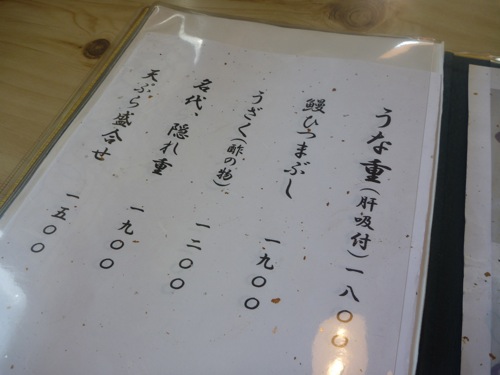 うな重(肝吸付)一八〇〇
鰻ひつまぶし 一九〇〇
うざく(酢の物) 一二〇〇
名代、隠れ重 一九〇〇
天ぷら盛合せ 一五〇〇